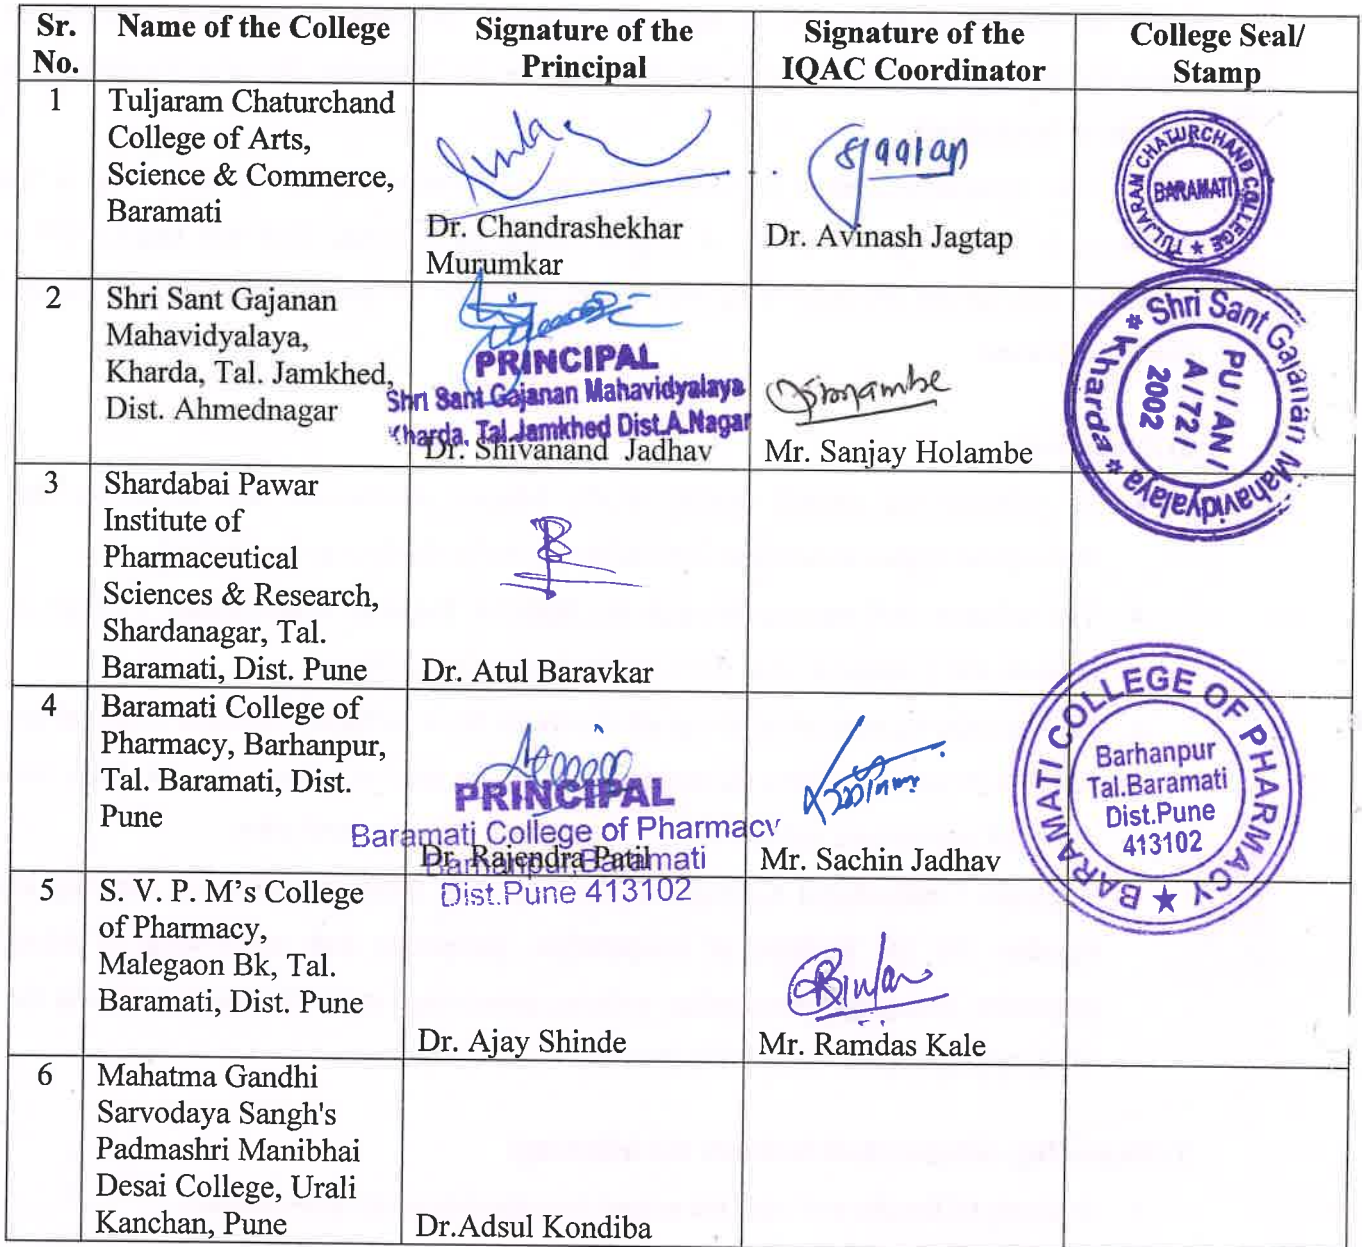 Sr. No.
Name of the College
Signature of the Principal
Signature of the IQAC Coordinator
College Seal/ Stamp
1
Tuljaram Chaturchand
College of Arts,
Science & Commerce,
Baramati
Dr. Chandrashekhar
Murumkar
Dr. Avinash Jagtap
TULJARAM CHATURCHAND COLLEGE
BARAMATI
2
Shri Sant Gajanan
Mahavidyalaya,
Kharda, Tal. Jamkhed,
Dist. Ahmednagar
PRINCIPAL
Shri Sant Gajanan Mahavidyalaya
Kharda, Tal.Jamkhed Dist.A.Nagar
Dr. Shivanand Jadhav
Mr. Sanjay Holambe
Shri Sant Gajanan Mahavidyalaya
Kharda
PU / AN /
A / 72 /
2002
3
Shardabai Pawar
Institute of
Pharmaceutical
Sciences & Research,
Shardanagar, Tal.
Baramati, Dist. Pune
Dr. Atul Baravkar
4
Baramati College of
Pharmacy, Barhanpur,
Tal. Baramati, Dist.
Pune
PRINCIPAL
Baramati College of Pharmacy
Barhanpur, Baramati
Dist.Pune 413102
Dr. Rajendra Patil
Mr. Sachin Jadhav
BARAMATI COLLEGE OF PHARMACY
Barhanpur
Tal.Baramati
Dist.Pune
413102
5
S. V. P. M’s College
of Pharmacy,
Malegaon Bk, Tal.
Baramati, Dist. Pune
Dr. Ajay Shinde
Mr. Ramdas Kale
6
Mahatma Gandhi
Sarvodaya Sangh's
Padmashri Manibhai
Desai College, Urali
Kanchan, Pune
Dr.Adsul Kondiba